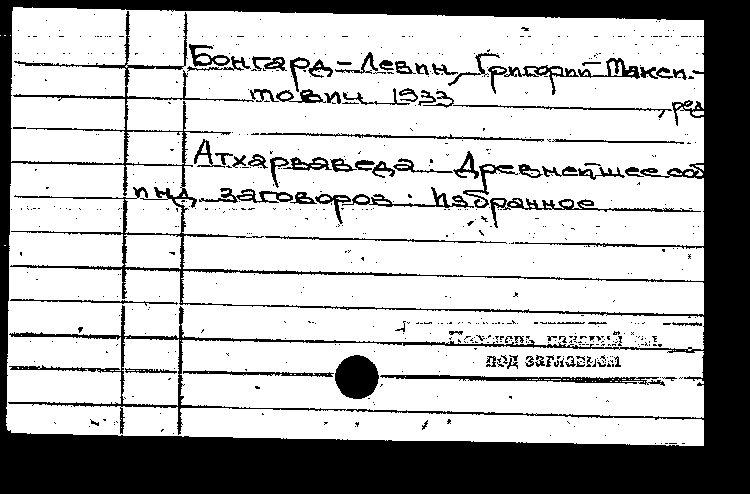 Бонгард-Левин, Григорий Макси-
мович 1933
, ред
Атхарваведа: Древнейшее соб
инд. заговоров: Избранное
под заглавием